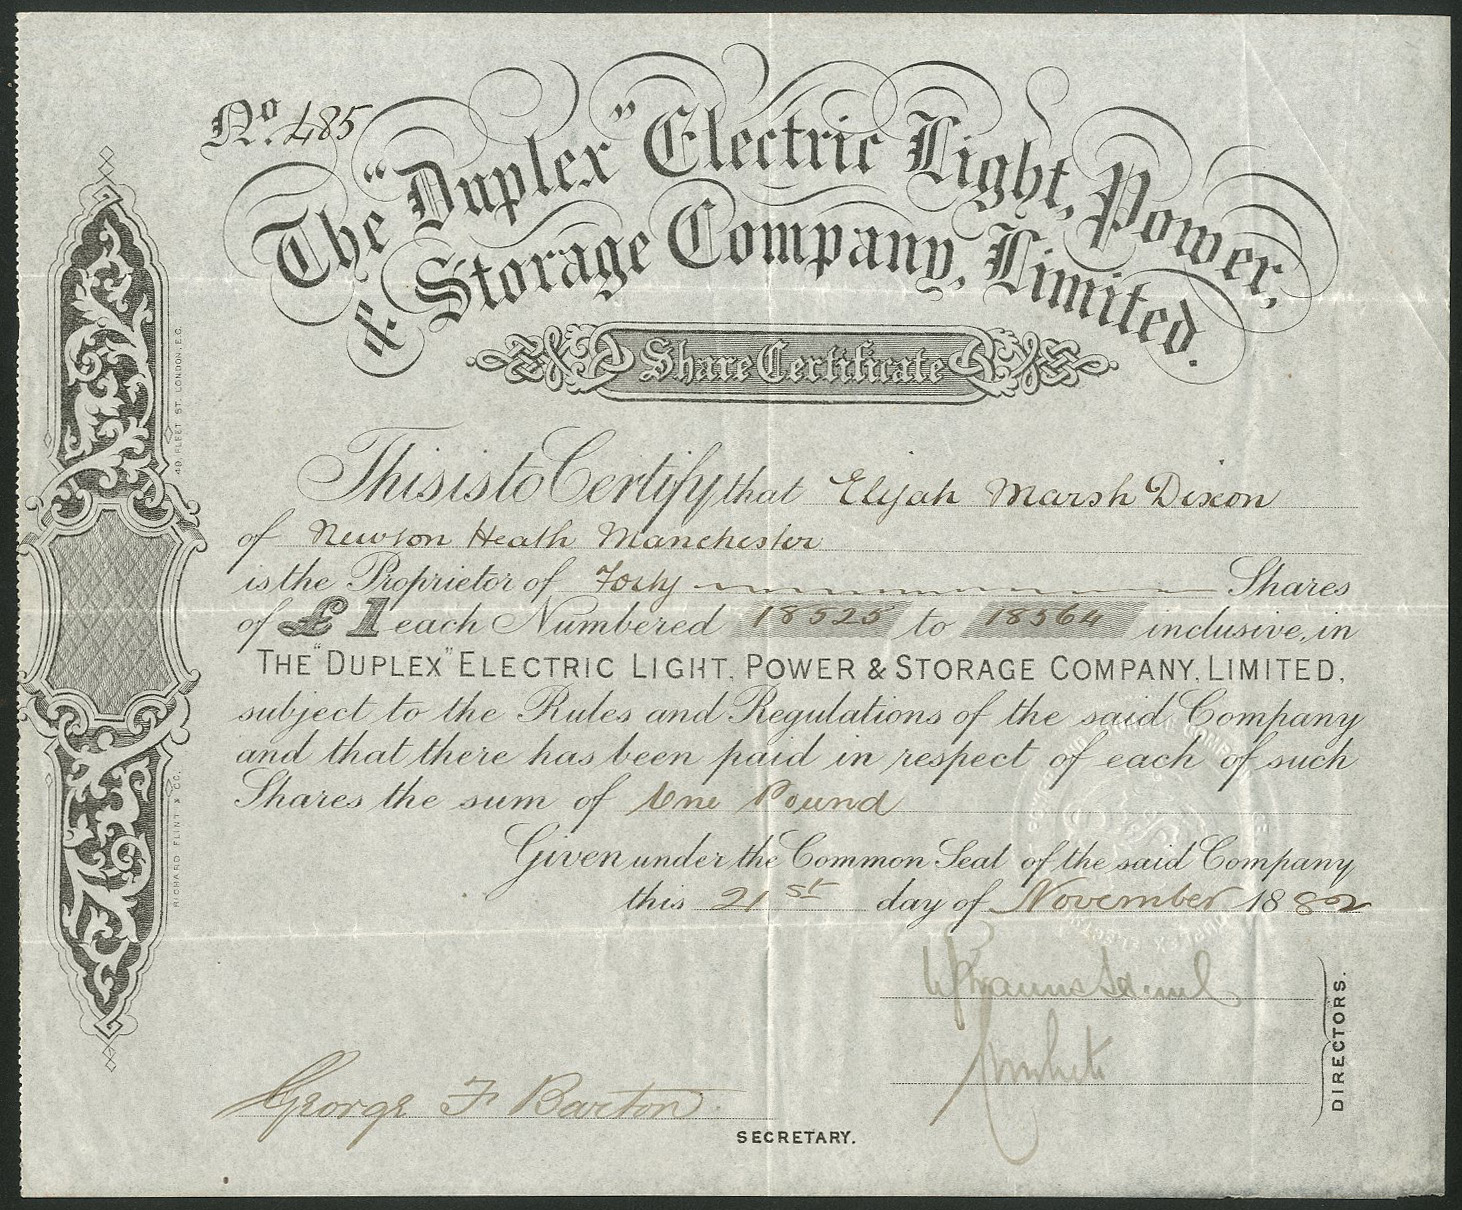 No. 485
The "Duplex" Electric Light, Power,
& Storage Company, Limited.
Share Certificate
This is to Certify that Elijah Marsh Dixon
of Newton Heath Manchester
is the Proprietor of Forty Shares
of £1 each Numbered 18525 to 18564 inclusive, in
THE "DUPLEX" ELECTRIC LIGHT, POWER & STORAGE COMPANY, LIMITED,
subject to the Rules and Regulations of the said Company
and that there has been paid in respect of each of such
Shares the sum of One Pound
Given under the Common Seal of the said Company,
this 21st day of November 1882
DIRECTORS.
George F Barton
SECRETARY.
RICHARD FLINT & CO. 49, FLEET ST. LONDON, E.C.